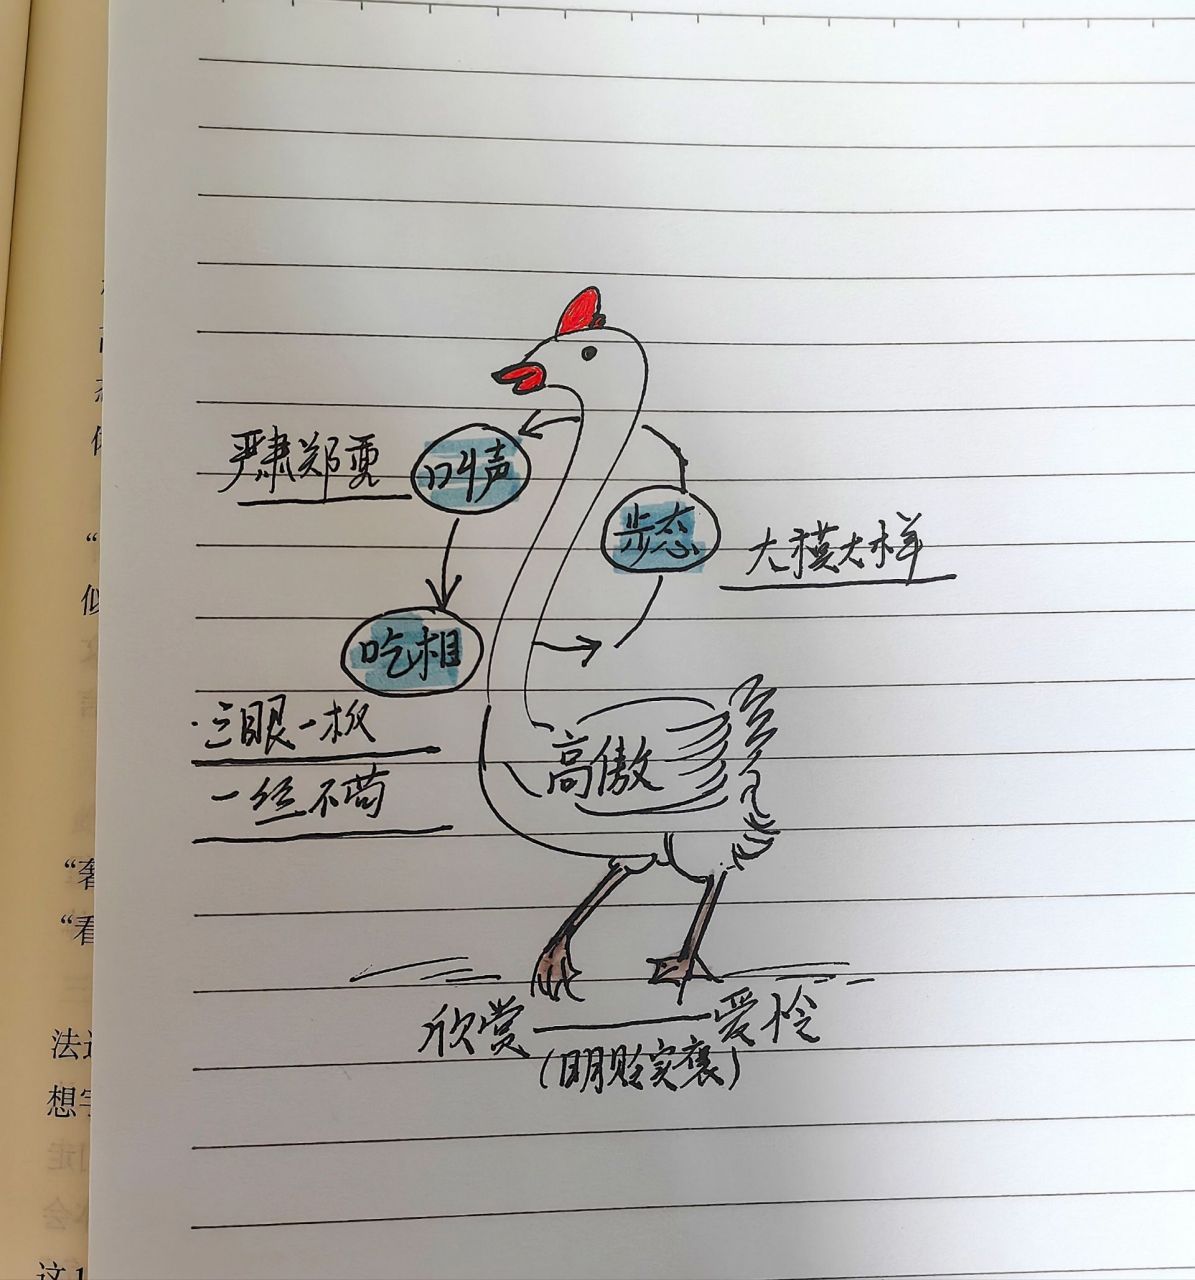 严肃郑重
叫声
步态
大模大样
吃相
三眼一板
一丝不苟
高傲
欣赏——爱怜
(明贬实褒)
“
似
“奢
“看
法
想
这1